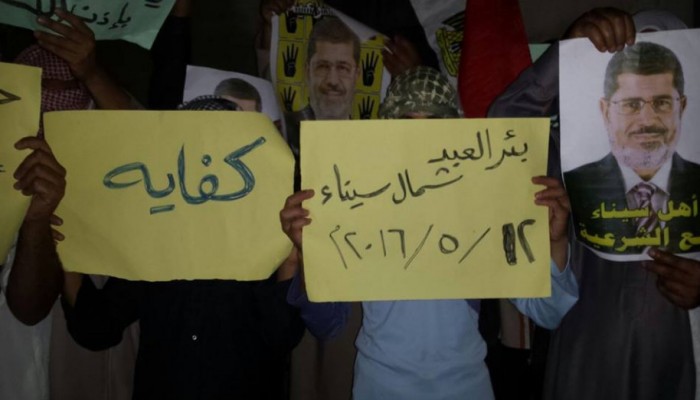 بإذن الله
كفايه
بئر العبد
شمال سيناء
١٢/٥/٢٠١٦م
أهل سيناء
مع الشرعية